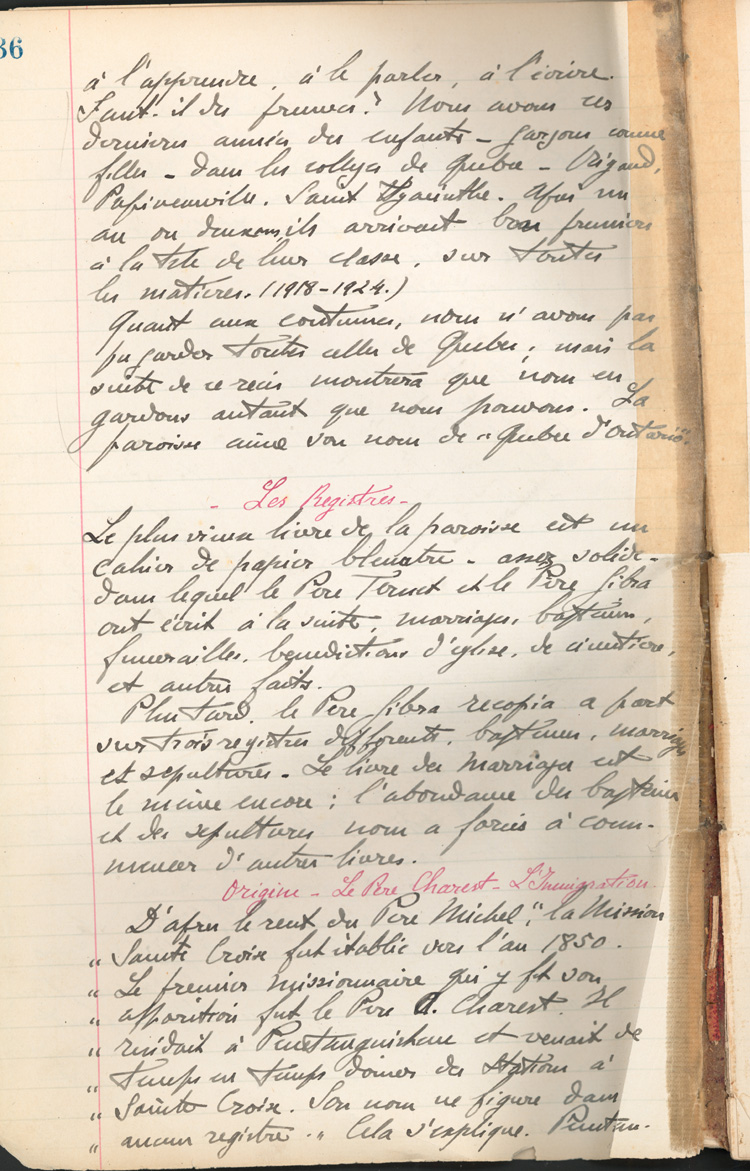 36
à l'apprendre, à le parler, à l'écrire.
Faut-il des preuves? Nous avons ces
derniers années des enfants - garçons comme
filles - dans les collèges de Quebec - Rigaud,
Papineauville, Saint Hyacinthe. Apres un
an ou deux ils arrivent bon premiers
à la tete de leur classe, sur toutes
les matieres. (1918-1924.)
Quant aux coutumes, nous n'avons pas
pu garder toutes celles de Quebec; mais la
suite de ce recit montrera que nous en
gardons autant que nous pouvons. La
paroisse aime son nom de "Quebec d'Ontario".
- Les Registres -
Le plus vieux livre de la paroisse est un
Cahier de papier bleuatre - assez solide -
dans lequel le Pere Ternet et le Père Gibra
ont écrit à la suite, marriages, baptemes,
funerailles, benedictions d'eglise, de cimetiere,
et autres faits.
Plus tard, le Pere Gibra recopia a part
sur trois registres differents, baptemes, marriages
et sepultures - Le livre des Marriages est
le même encore; l'abondance des baptemes
et des sepultures nous a forcés à com-
mencer d'autres livres.
Origine - Le Père Charest - L'Immigration.
D'apres le recit du Pere Michel, "la Mission
" Sainte Croix fut établie vers l'an 1850.
" Le premier missionnaire qui y fit son
" apparition fut le Pere Charest. Il
" residait à Penetanguishene et venait de
" temps en temps donner des Stations à
" Sainte Croix. Son nom ne figure dans
" aucun registre." Cela s'explique. Penetan-